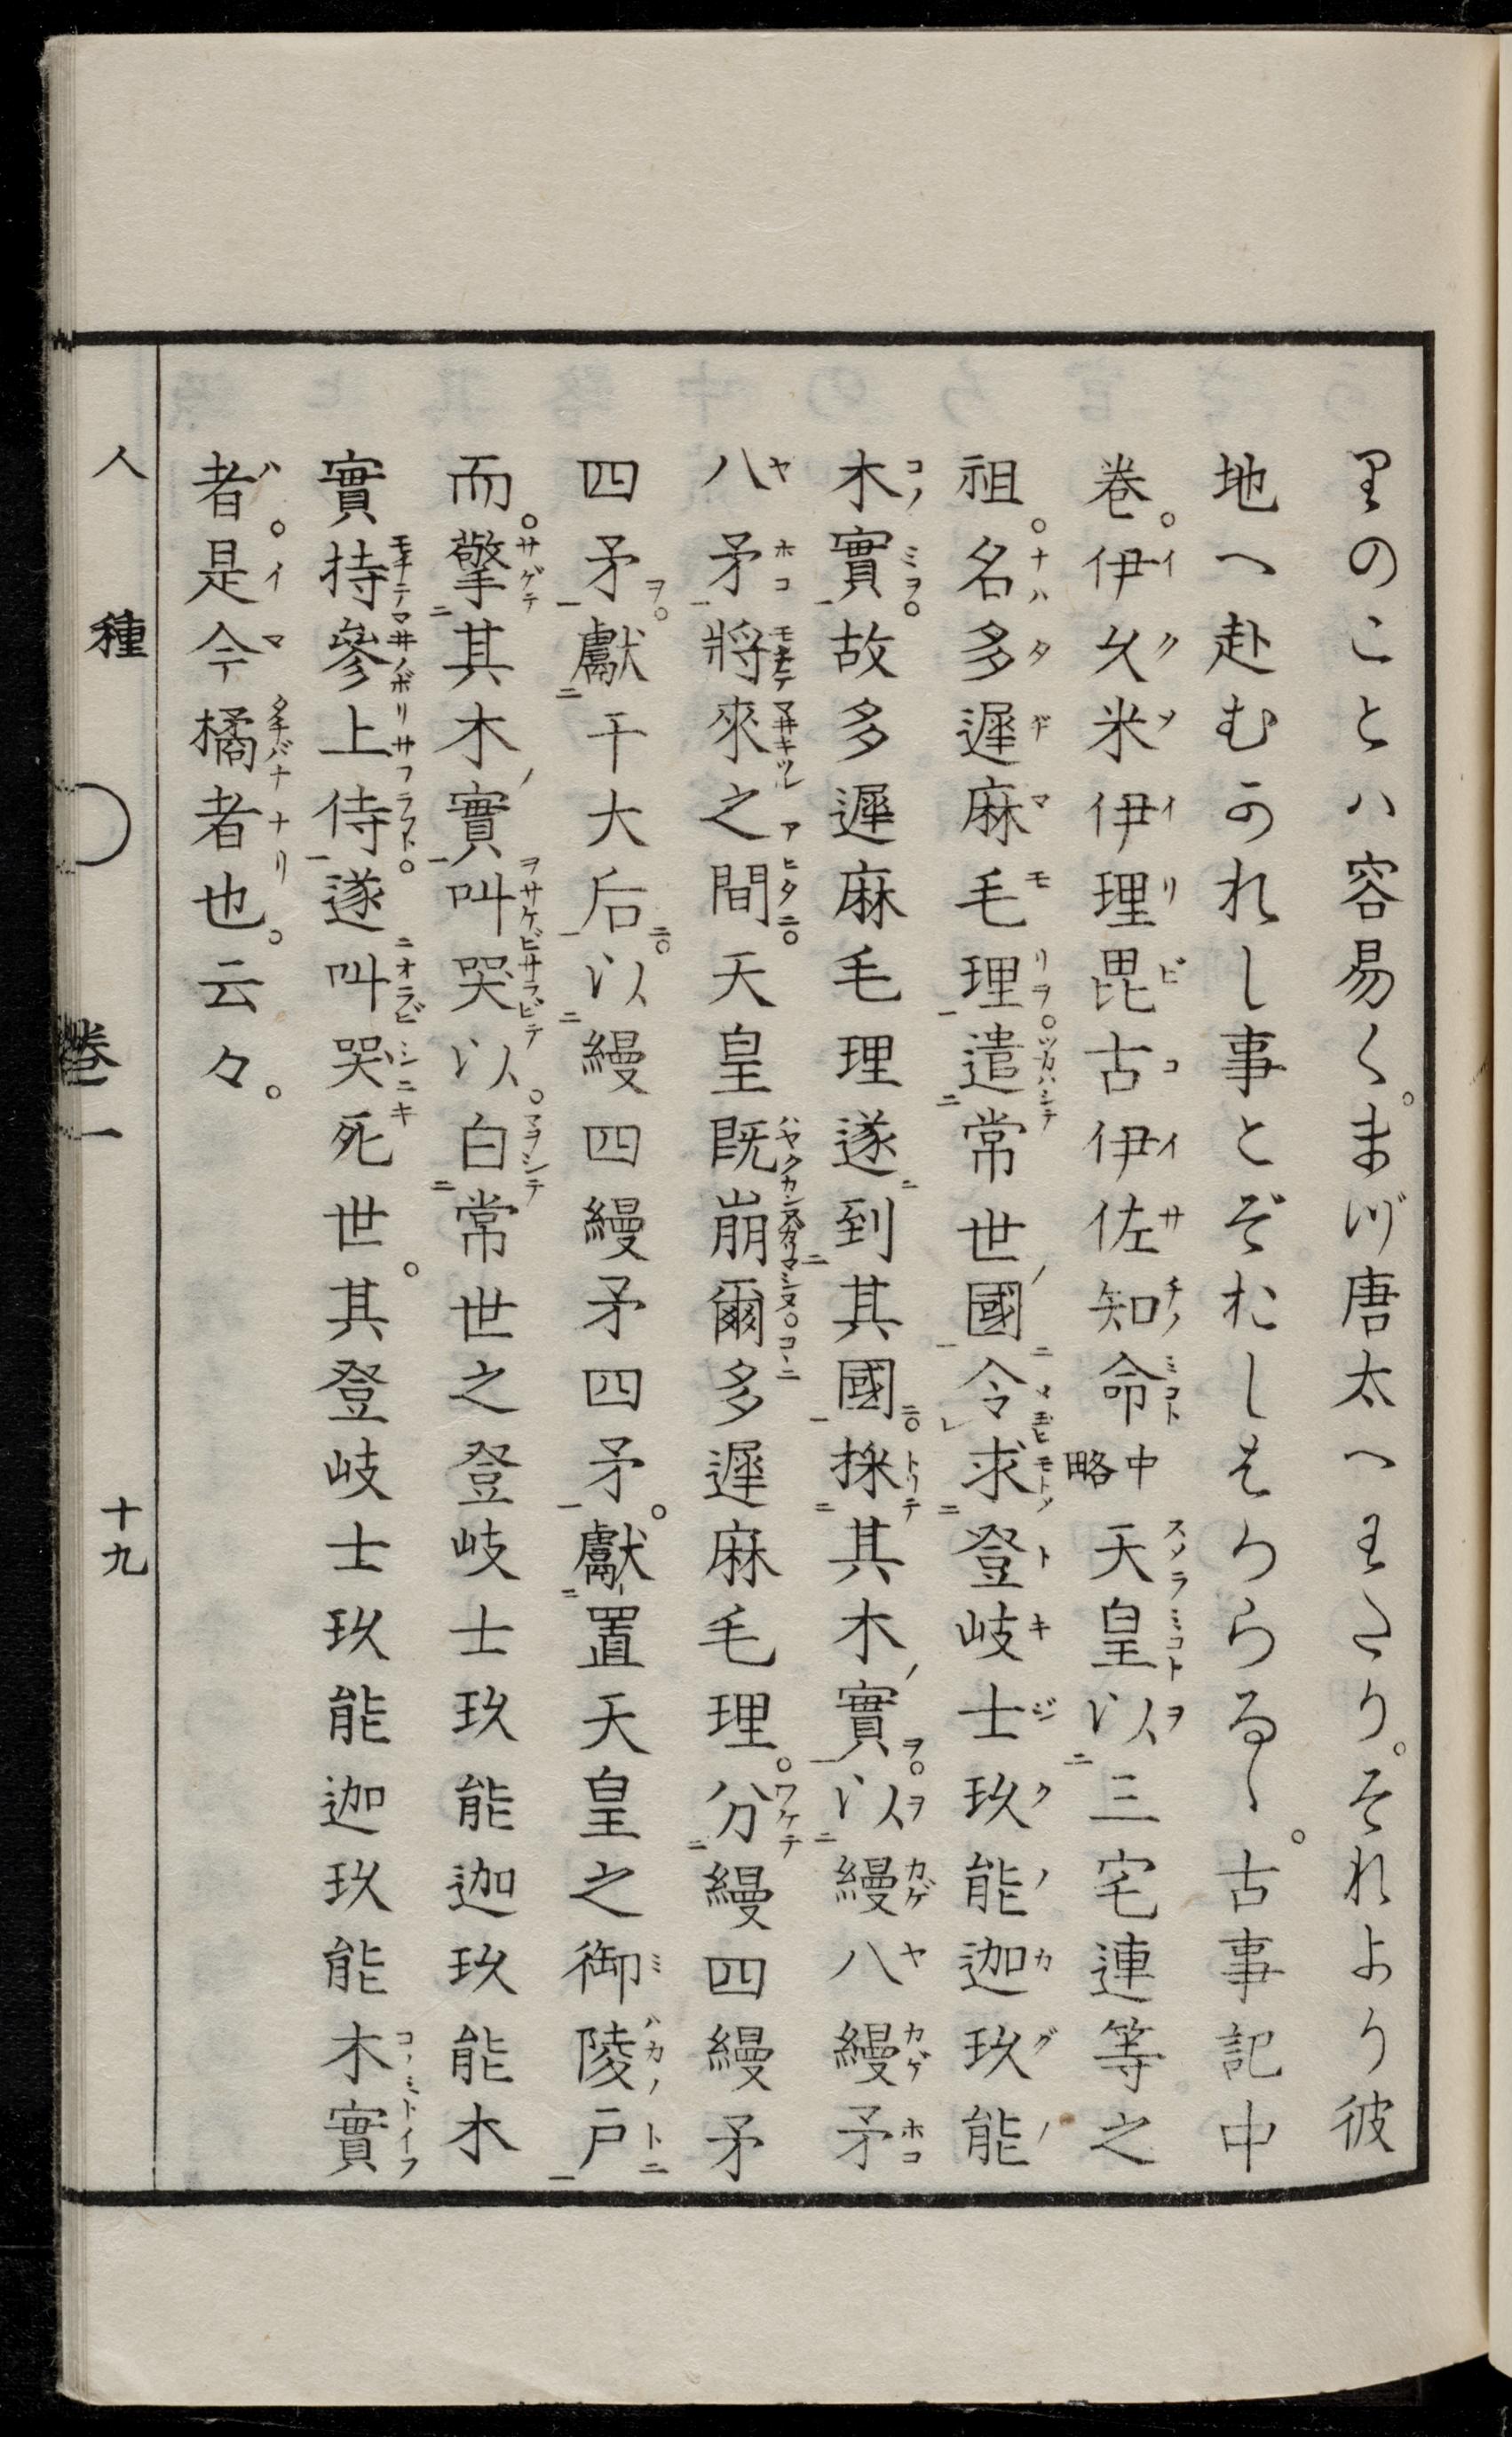 りのことハ容易く。まづ唐太へわたり。それより彼
地へ赴むかれし事とぞおしはからるゝ。古事記中
巻。伊久米伊理毘古伊佐知命中略天皇以三宅連等之
祖。名多遲麻毛理遣常世國令求登岐士玖能迦玖能
木實。故多遲麻毛理遂到其國。採其木實。以縵八縵矛
八矛將來之間。天皇既崩爾多遲麻毛理。分縵四縵矛
四矛。獻于大后。以縵四縵矛四矛。獻置天皇之御陵戸
而。擎其木實叫哭以。白常世之登岐士玖能迦玖能木
實持參上侍。遂叫哭死世。其登岐士玖能迦玖能木實
者。是今橘者也。云々。
人種 巻一 十九